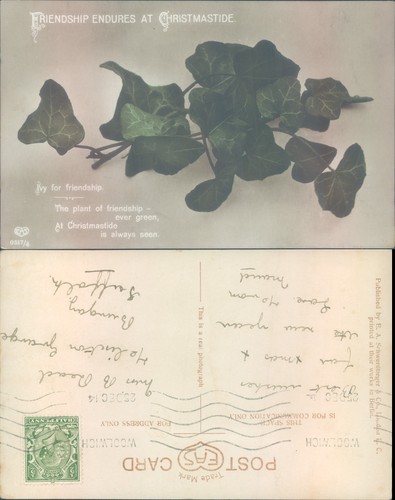 FRIENDSHIP ENDURES AT CHRISTMASTIDE.
Ivy for friendship.
The plant of friendship -
ever green,
At Christmastide
is always seen.
EAS
POST CARD
Trade EAS Mark
THIS SPACE
IS FOR COMMUNICATION ONLY
FOR ADDRESS ONLY
WOOLWICH
25 DEC 14
WOOLWICH
25 DEC
HALFPENNY
Best wishes
for Xmas &
the new year
Love to
This is a real photograph
Miss B Read
Grange
Bungay
Suffolk.
printed at their works in Berlin.